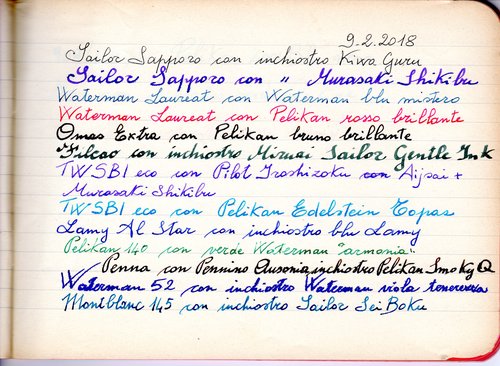 9.2.2018
Sailor Sapporo con inchiostro Kiwa Guru
Sailor Sapporo con " Murasaki Shikibu
Waterman Laureat con Waterman blu mistero
Waterman Laureat con Pelikan rosso brillante
Omas Extra con Pelikan bruno brillante
Filcao con inchiostro Miruai Sailor Gentle Ink
TWSBI eco con Pilot Iroshizoku con Aijsai +
Murasaki Shikibu
TWSBI eco con Pelikan Edelstein Topas
Lamy Al Star con inchiostro blu Lamy
Pelikan 140 con verde Waterman "armonia"
Penna con Pennino Ausonia, inchiostro Pelikan Smoky Q
Waterman 52 con inchiostro Waterman viola
Montblanc 145 con inchiostro Sailor Sei Boku